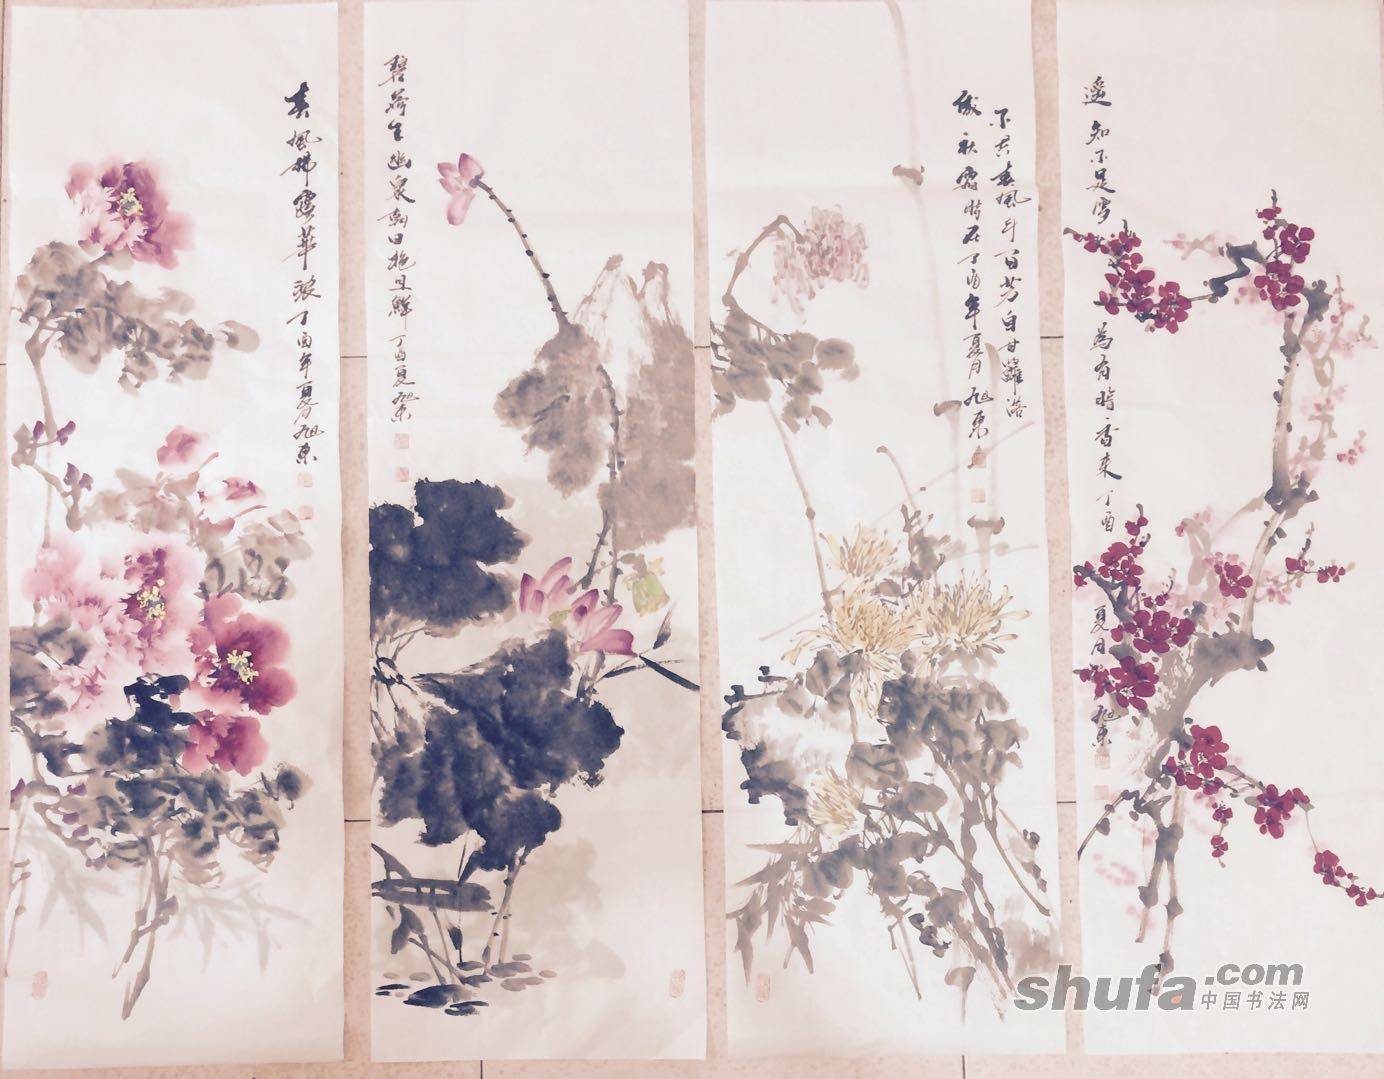 春風拂露華浓丁酉年夏月旭东
碧荷生幽泉朝日艳且鲜丁酉夏旭东
不共春風斗百芳自甘籬落
傲秋霜時在丁酉年夏月旭东
遥知不是雪
為有暗香来丁酉
夏月旭东
shufa.com
中国书法网